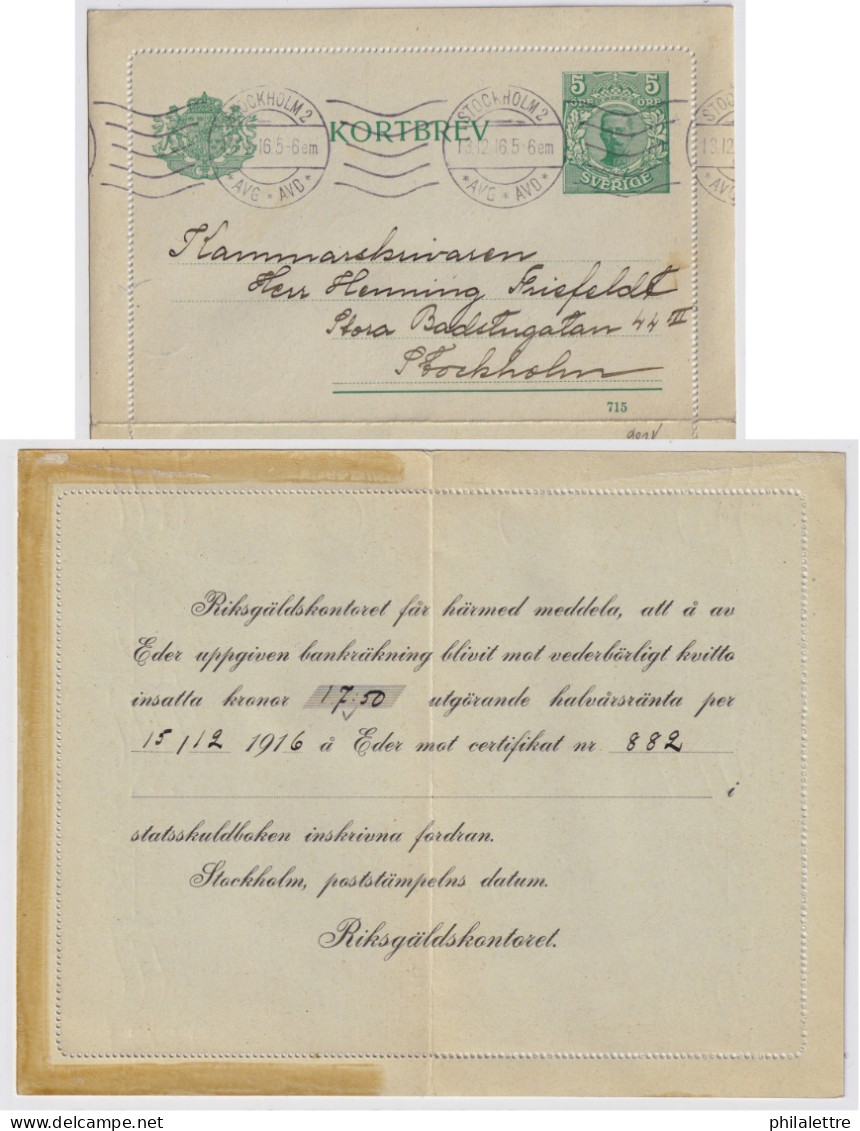 STOCKHOLM 2
16.5-6em
* AVG * AVD *
KORTBREV
STOCKHOLM 2
13.12.16.5-6em
* AVG * AVD *
5 5
ÖRE ÖRE
SVERIGE
STOCK
13.12
* AVG
Kammarskrivaren
Herr Henning Friefeldt
Stora Badstugatan 44 III
Stockholm
715
Riksgäldskontoret får härmed meddela, att å av
Eder uppgiven bankräkning blivit mot vederbörligt kvitto
insatta kronor 17:50 utgörande halvårsränta per
15/12 1916 å Eder mot certifikat nr 882
i
statsskuldboken inskrivna fordran.
Stockholm, poststämpelns datum.
Riksgäldskontoret.
philalettre